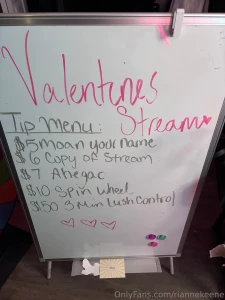 Valentines
Stream
Tip Menu:
$5 Moan your name
$6 Copy of Stream
$7 Ahegao
$10 Spin Wheel
$50 3 Min Lush Control
OnlyFans.com/riannekeene